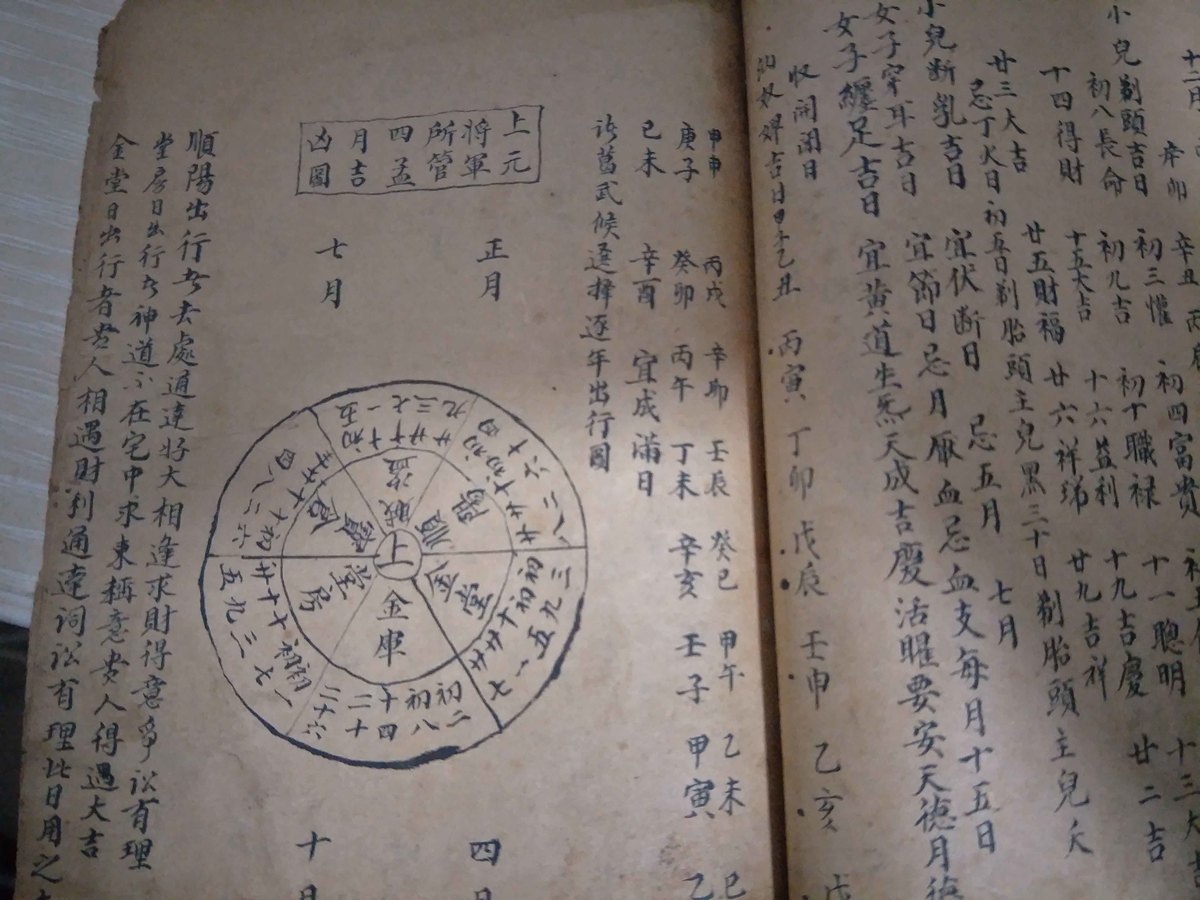 十二月
辛卯 辛丑
小兒剃頭吉日 初三 初四富貴
初八長命 初九吉 初十職禄 十一聰明 十三大吉
十四得財 十五大吉 十六益利 十九吉慶 廿二吉
廿三大吉 廿五財福 廿六祥 廿九吉祥
忌丁火日 初五日剃胎頭主兒黑 三十日剃胎頭主兒夭
小兒断乳吉日 宜伏断日 忌五月 七月
女子穿耳吉日 宜節日忌月厭血忌血支每月十五日
女子纏足吉日 宜黄道生炁天成吉慶活曜要安天德月德
收開閉日
納奴婢吉日甲子乙丑 丙寅 丁卯 戊辰 壬申 乙亥 戊
甲申 丙戌 辛卯 壬辰 癸巳 甲午 乙未
庚子 癸卯 丙午 丁未 辛亥 壬子 甲寅 乙
己未 辛酉 宜成滿日
武候選擇逐年出行圖
上元
将軍
所管
四孟
月吉
凶圖
正月 四月
七月 十月
上
順陽
初四 初
十 十六 廿 廿八
金堂
初三 初九 十五 廿一 廿七
金庫
初二 初八 十四 二十 二十六
堂房
初一 初七 十三 十九 廿五
寶倉
初六 十二 十八 廿四
賊盗
初五 十一 十七 廿三 廿九
順陽出行者去處通達好大相逢求財得意爭訟有理
堂房日出行者神道不在宅中求東稱意貴人得遇大吉
金堂日出行者貴人相遇財利通達詞訟有理此日用之